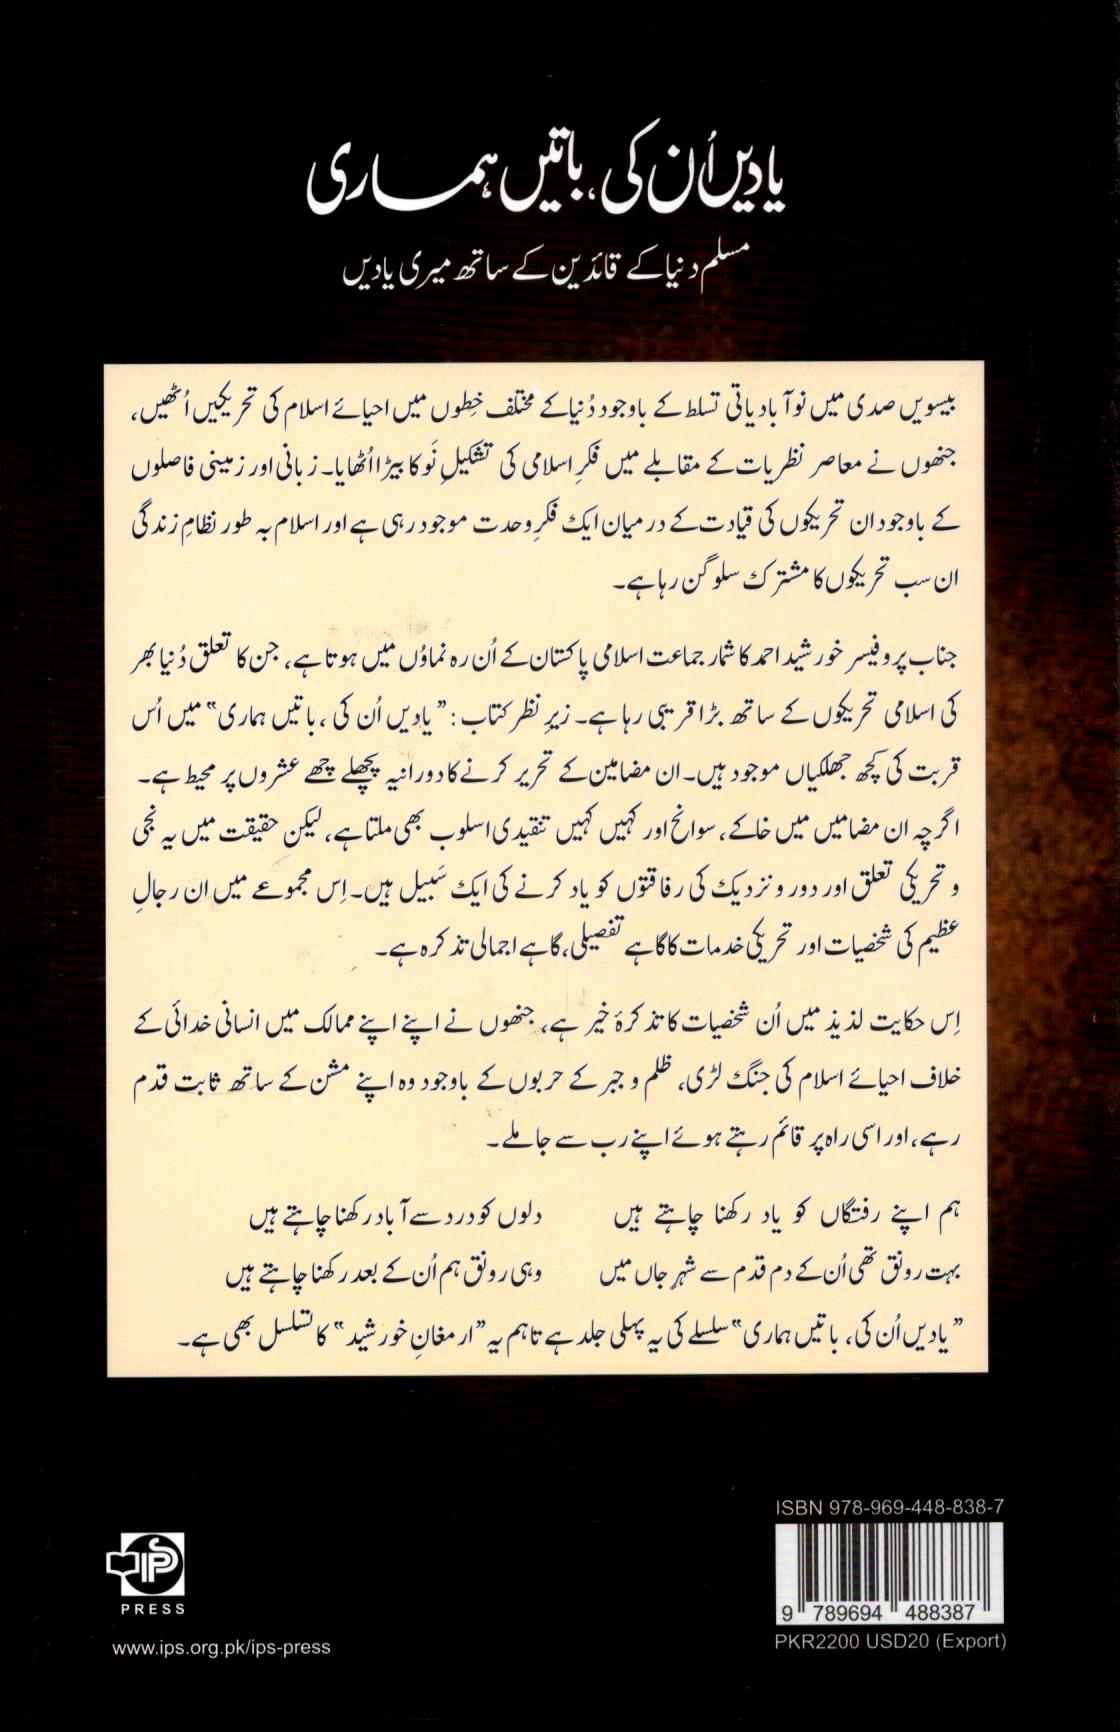 یادیں اُن کی، باتیں ہماری
مسلم دنیا کے قائدین کے ساتھ میری یادیں
بیسویں صدی میں نوآبادیاتی تسلط کے باوجود دُنیا کے مختلف خِطوں میں احیائے اسلام کی تحریکیں اُٹھیں،
جنھوں نے معاصر نظریات کے مقابلے میں فکرِ اسلامی کی تشکیلِ نَو کا بیڑا اُٹھایا۔ زبانی اور زمینی فاصلوں
کے باوجود ان تحریکوں کی قیادت کے درمیان ایک فکرِ وحدت موجود رہی ہے اور اسلام بہ طور نظامِ زندگی
ان سب تحریکوں کا مشترک سلوگن رہا ہے۔
جناب پروفیسر خورشید احمد کا شمار جماعت اسلامی پاکستان کے اُن رہ نماؤں میں ہوتا ہے، جن کا تعلق دُنیا بھر
کی اسلامی تحریکوں کے ساتھ بڑا قریبی رہا ہے۔ زیرِ نظر کتاب: ”یادیں اُن کی، باتیں ہماری“ میں اُس
قربت کی کچھ جھلکیاں موجود ہیں۔ ان مضامین کے تحریر کرنے کا دورانیہ پچھلے چھے عشروں پر محیط ہے۔
اگرچہ ان مضامیں میں خاکے، سوانح اور کہیں کہیں تنقیدی اسلوب بھی ملتا ہے، لیکن حقیقت میں یہ نجی
و تحریکی تعلق اور دور و نزدیک کی رفاقتوں کو یاد کرنے کی ایک سَبیل ہیں۔ اِس مجموعے میں ان رجالِ
عظیم کی شخصیات اور تحریکی خدمات کا گاہے تفصیلی، گاہے اجمالی تذکرہ ہے۔
اِس حکایت لذیذ میں اُن شخصیات کا تذکرۂ خیر ہے، جنھوں نے اپنے اپنے ممالک میں انسانی خدائی کے
خلاف احیائے اسلام کی جنگ لڑی، ظلم و جبر کے حربوں کے باوجود وہ اپنے مشن کے ساتھ ثابت قدم
رہے، اور اسی راہ پر قائم رہتے ہوئے اپنے رب سے جا ملے۔
ہم اپنے رفتگاں کو یاد رکھنا چاہتے ہیں دلوں کو درد سے آباد رکھنا چاہتے ہیں
بہت رونق تھی اُن کے دم قدم سے شہرِ جاں میں وہی رونق ہم اُن کے بعد رکھنا چاہتے ہیں
”یادیں اُن کی، باتیں ہماری“ سلسلے کی یہ پہلی جلد ہے تاہم یہ ”ارمغانِ خورشید“ کا تسلسل بھی ہے۔
ISBN 978-969-448-838-7
9 789694 488387
PKR2200 USD20 (Export)
IPS
PRESS
www.ips.org.pk/ips-press